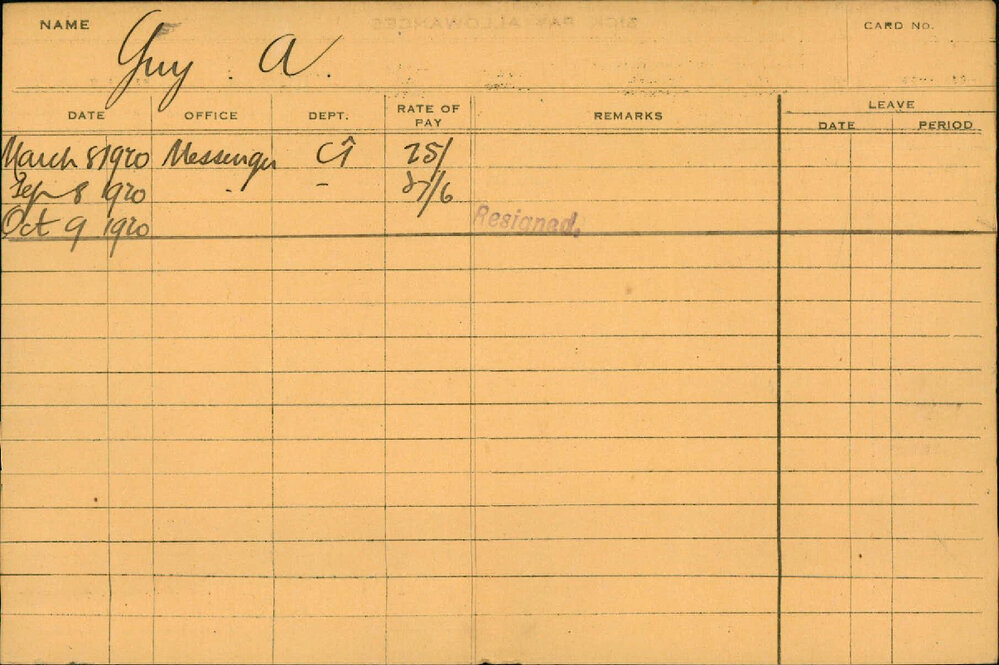 NAME Guy. A. CARD No.
DATE OFFICE DEPT. RATE OF PAY REMARKS LEAVE
DATE PERIOD
March 8 1920 Messenger 25/
Sep 8 1920 - - /6
Oct 9 1920 Resigned.